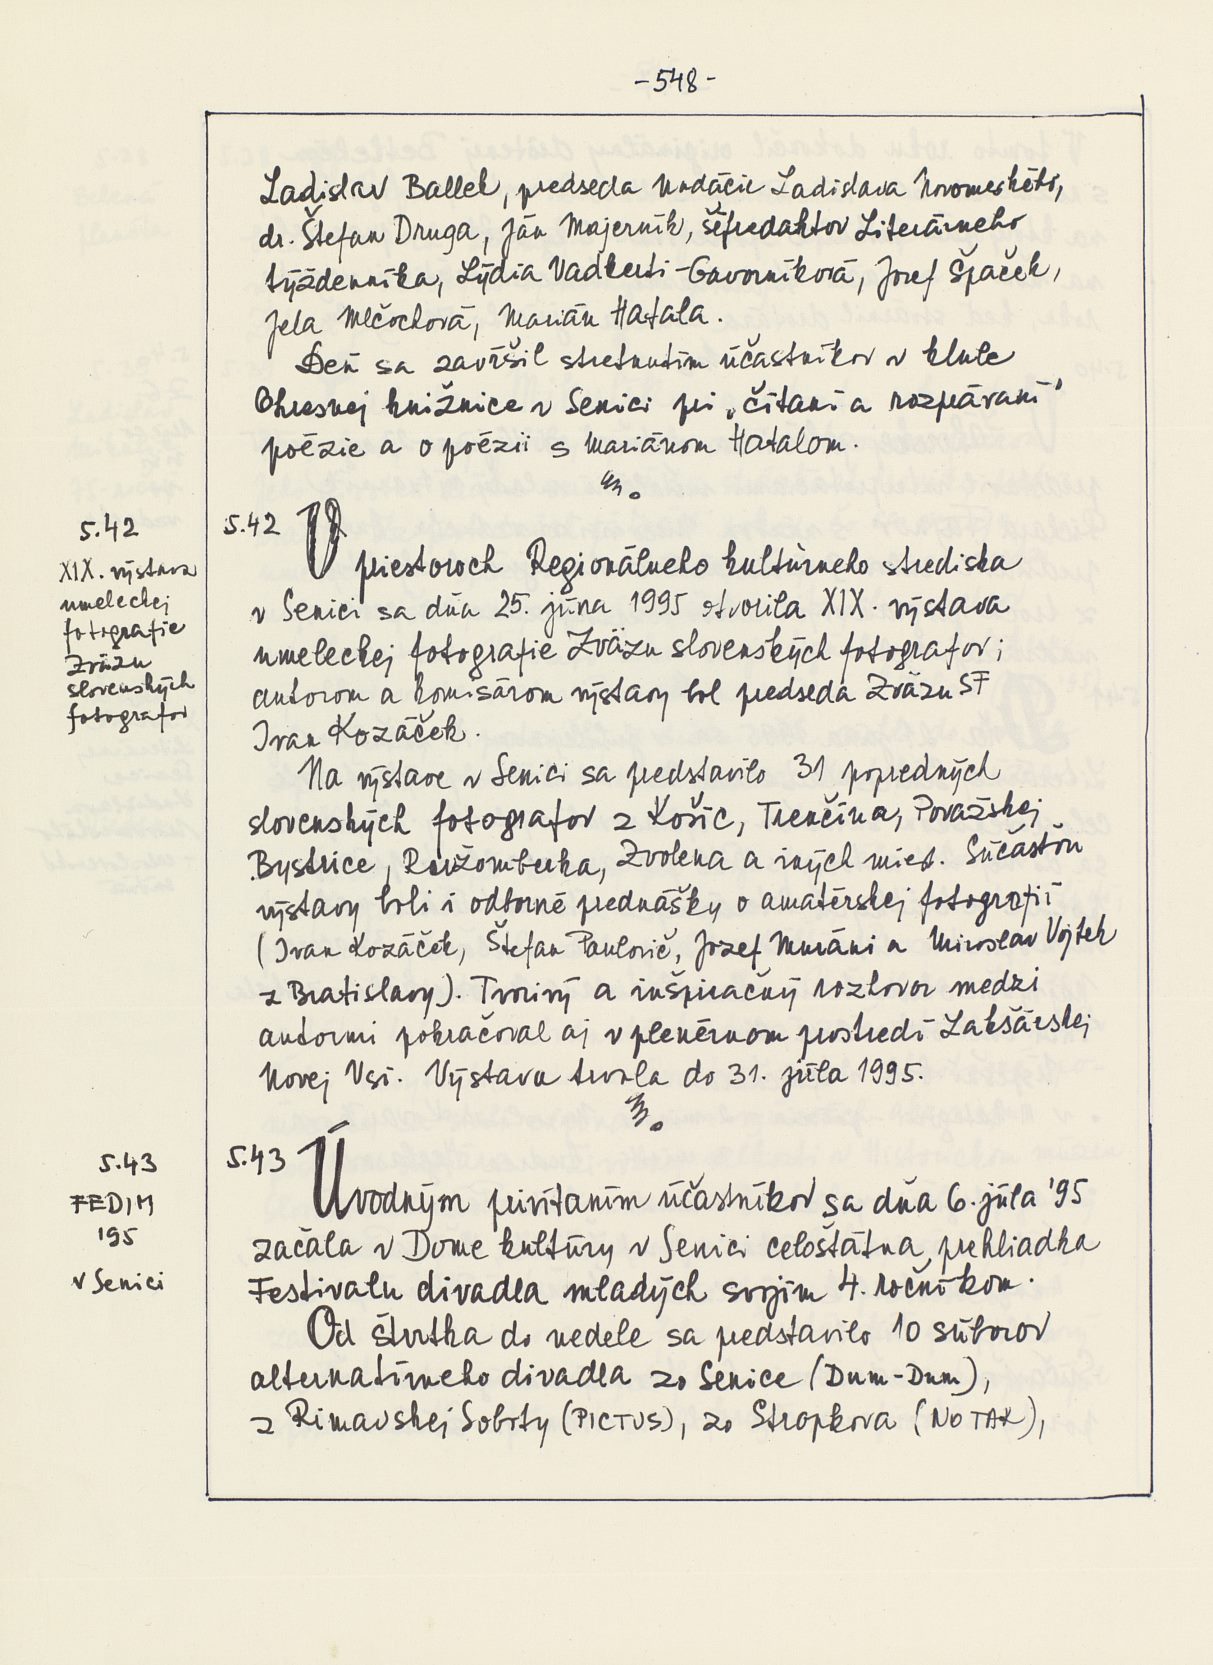 -548-
Ladislav Ballek, predseda Nadácie Ladislava Novomeského,
dr. Štefan Druga, Ján Majerník, šéfredaktor Literárneho
týždenníka, Lýdia Vadkerti-Gavorníková, Jozef Špaček,
Jela Mlčochová, Marián Hatala.
Deň sa zavŕšil stretnutím účastníkov v klube
Okresnej knižnice v Senici pri „čítaní a rozprávaní"
poézie a o poézii s Mariánom Hatalom.
5.42
XIX. výstava
umeleckej
fotografie
Zväzu
slovenských
fotografov
5.42 V priestoroch Regionálneho kultúrneho strediska
v Senici sa dňa 25. júna 1995 otvorila XIX. výstava
umeleckej fotografie Zväzu slovenských fotografov;
autorom a komisárom výstavy bol predseda Zväzu SF
Ivan Kozáček.
Na výstave v Senici sa predstavilo 31 popredných
slovenských fotografov z Košíc, Trenčína, Považskej
Bystrice, Ružomberka, Zvolena a iných miest. Súčasťou
výstavy boli i odborné prednášky o amatérskej fotografii
(Ivan Kozáček, Štefan Pavlovič, Jozef Muráni a Miroslav Vojtek
z Bratislavy). Tvorivý a inšpiračný rozhovor medzi
autormi pokračoval aj v plenérnom prostredí Lakšárskej
Novej Vsi. Výstava trvala do 31. júla 1995.
5.43
FEDIM
'95
v Senici
5.43 Úvodným privítaním účastníkov sa dňa 6. júla '95
začala v Dome kultúry v Senici celoštátna prehliadka
Festivalu divadla mladých svojim 4. ročníkom.
Od štvrtka do nedele sa predstavilo 10 súborov
alternatívneho divadla zo Senice (Dum-Dum),
z Rimavskej Soboty (PICTUS), zo Stropkova (NO TAK),